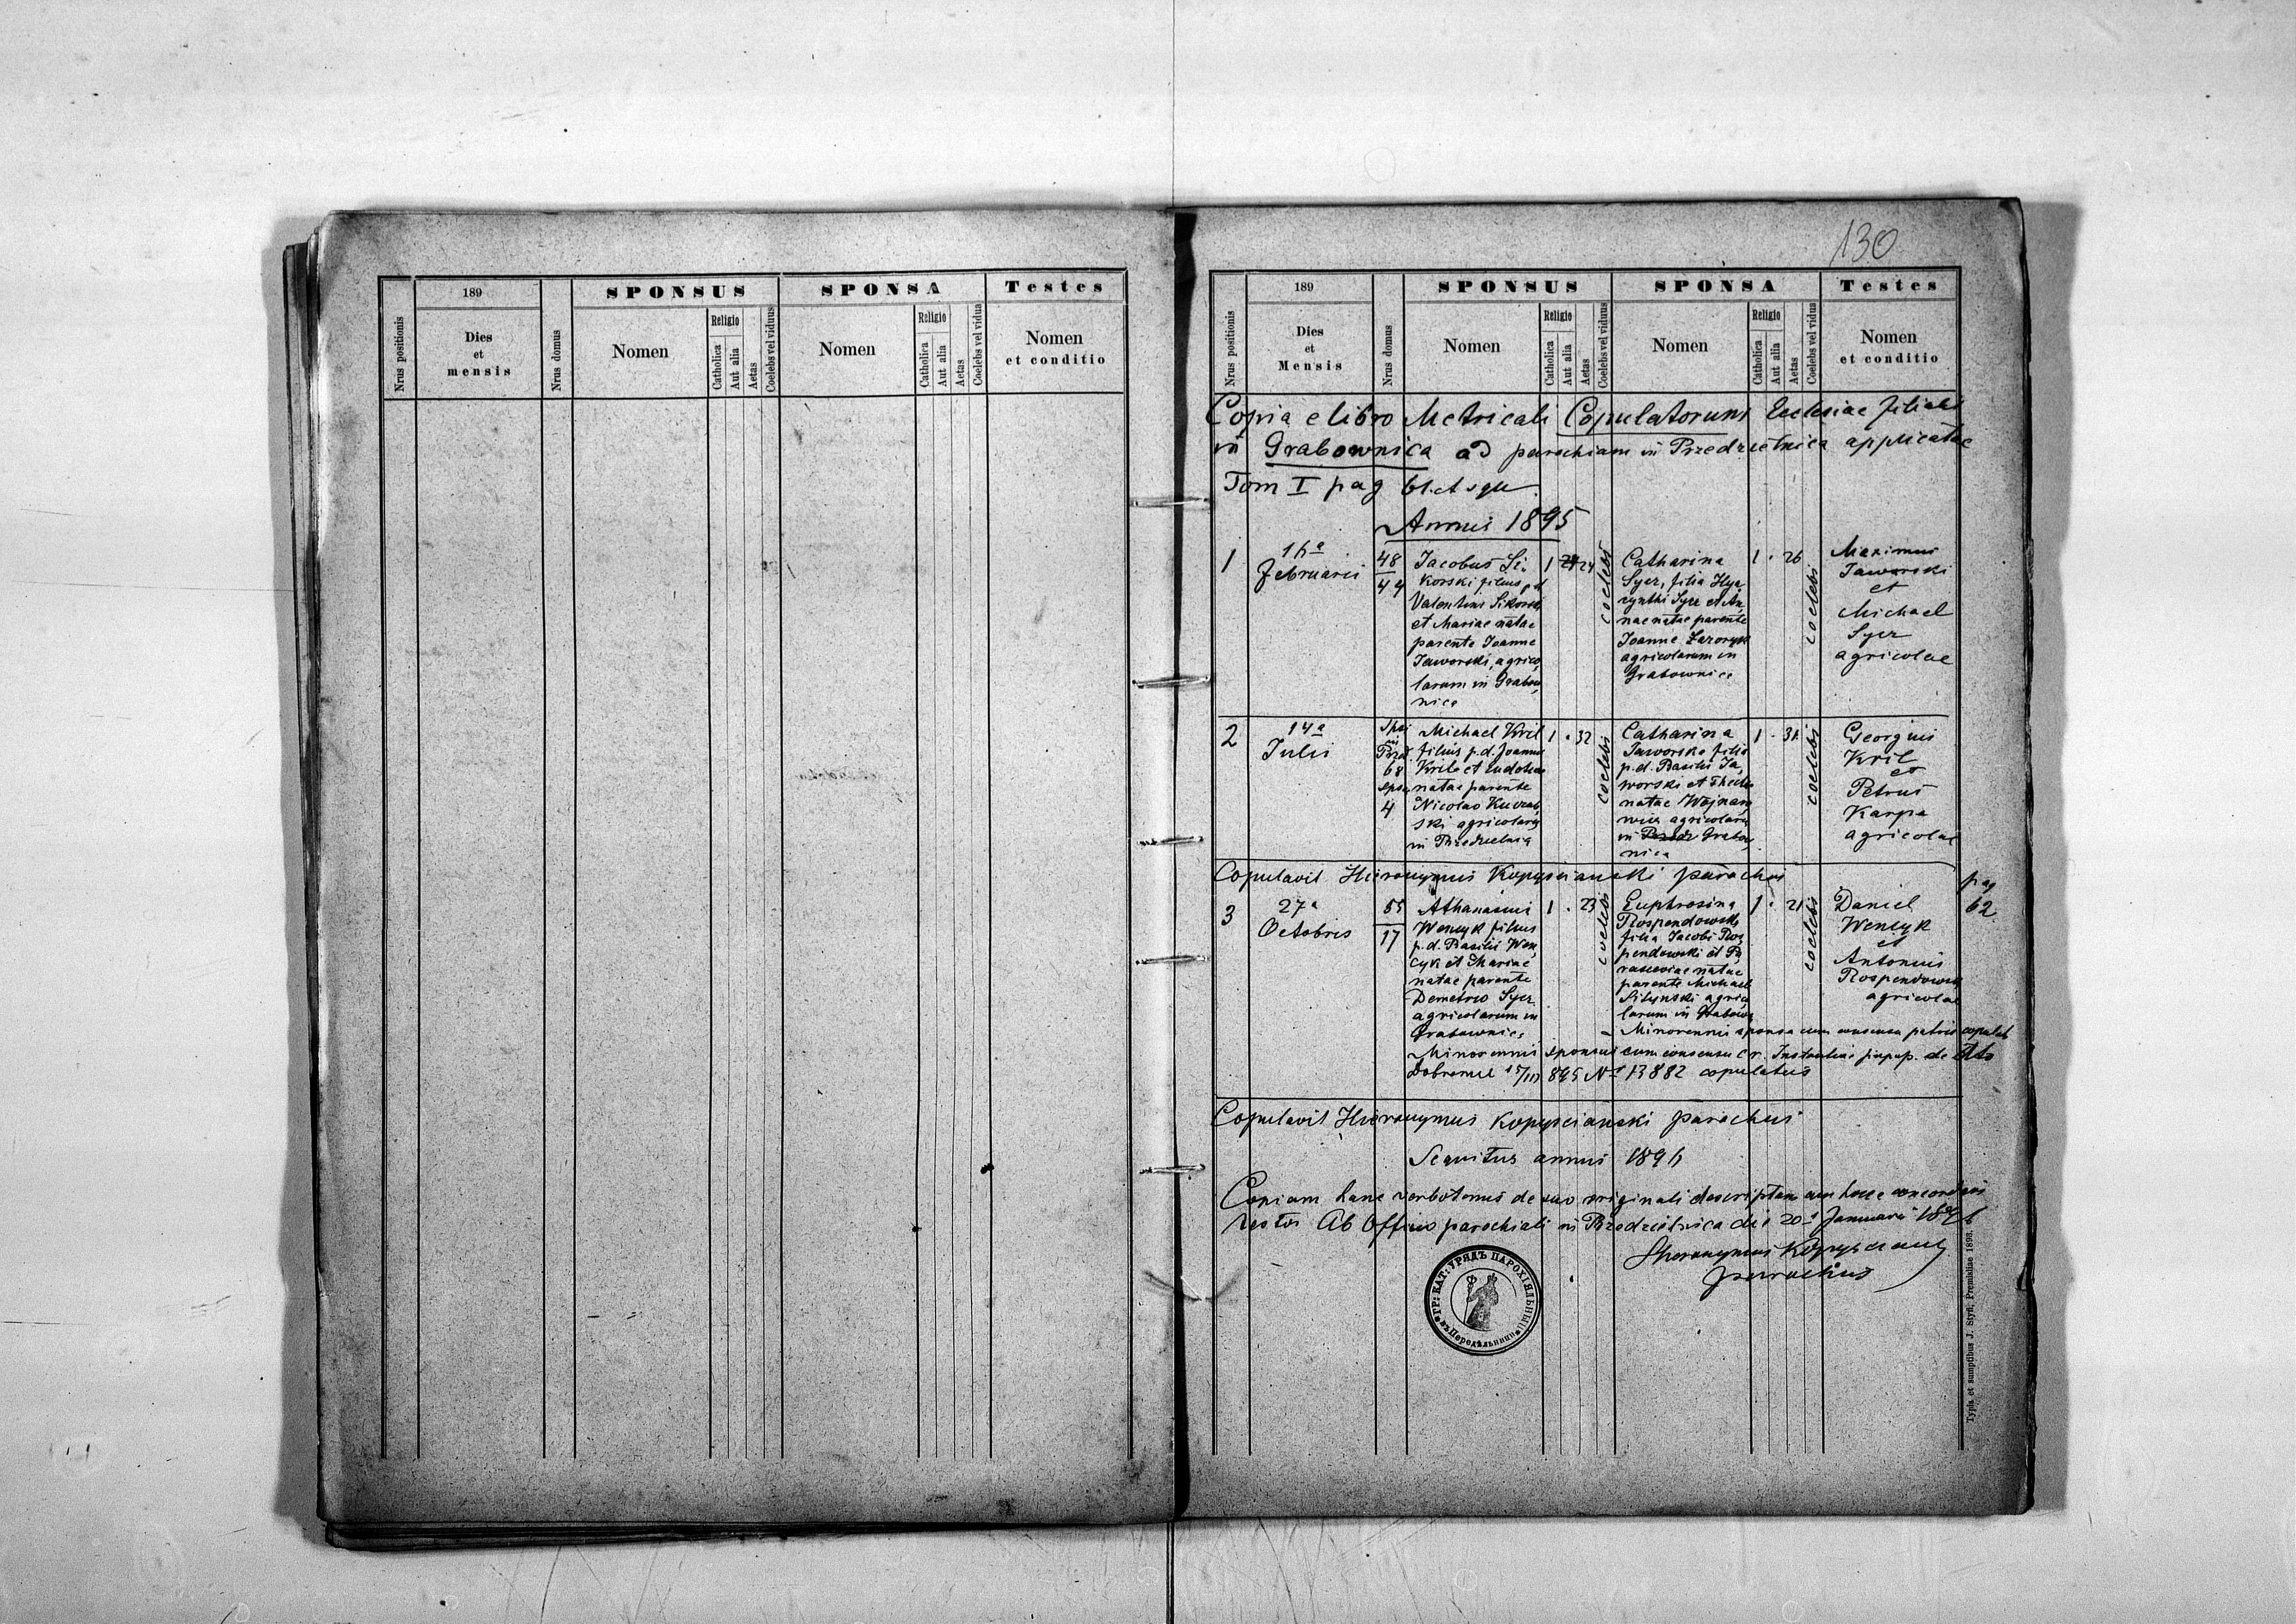 189
SPONSUS
SPONSA
Testes
Nrus positionis
Dies
et
mensis
Nrus domus
Nomen
Religio
Catholica
Aut alia
Aetas
Coelebs vel viduus
Nomen
Religio
Catholica
Aut alia
Aetas
Coelebs vel vidua
Nomen
et conditio
130
189
SPONSUS
SPONSA
Testes
Nrus positionis
Dies
et
Mensis
Nrus domus
Nomen
Religio
Catholica
Aut alia
Aetas
Coelebs vel viduus
Nomen
Religio
Catholica
Aut alia
Aetas
Coelebs vel vidua
Nomen
et conditio
Copia e libro Metricali Copulatorum Ecclesiae filialis
in Grabownica ad parochiam in Przedzielnica applicatae
Tom I pag 61. et sqn
Annus 1895
1
16a
Februarii
48
44
Jacobus Si-
korski filius
Valentini Sikorski
et Mariae natae
parente Joanne
Jaworski, agrico
larum in Grabow
nica
1 24
coelebs
Catharina
Sycz, filia Hya
cynthi Sycz et An
nae natae parente
Joanne
agricolarum in
Grabownica
1 - 26
coelebs
Maximus
Jaworski
et
Michael
Sycz
agricolae
2
14a
Julii
Spsi
in
Przed
68
Spsae
4
Michael Kril
filius p.d. Joannis
Kril et Eudoxiae
natae parente
Nicolao
ski agricolarum
in Przedzielnica
1 - 32
coelebs
Catharina
Jaworska filia
p.d. Basilii Ja
worski et Theclae
natae Wojnaro
wicz agricolarum
in Przedz Grabow
nica
1 - 31
coelebs
Georgius
Kril
et
Petrus
Karpa
agricolae
Copulavit Hieronymus Kopyscianski parochus
pag
62
3
27a
Octobris
85
17
Athanasius
Wencyk filius
p.d. Basilii Wen
cyk et Mariae
natae parente
Demetrio Sycz
agricolarum in
Grabownica
1 - 23
coelebs
Euphrosina
Rospendowska
filia Jacobi Ros
pendowski et Pa
rasceviae natae
parente Michael
Silynski agrico
larum in Grabow
1 - 21
coelebs
Daniel
Wencyk
et
Antonius
Rospendowski
agricolae
- Minorennis sponsa cum consensu patris copulata
Minorennis sponsus cum consensu c r. Instantiae pupp. de Dto
Dobromil 15/III 895 No 13882 copulatus
Copulavit Hieronymus Kopyscianski parochus
Sequitur annus 1896
Copiam hanc verbotenus de suo originali descriptam cum hocce concordare
testor Ab Officio parochiali in Przedzielnica die 20a Januarii 1896
Hieronymus Kopyscianski
parochus
ГР: КАТ: УРЯДЪ ПАРОХІЯЛЬНЫЙ
въ Передѣльници
Typis et sumptibus J. Styfi, Premisliae 1893.